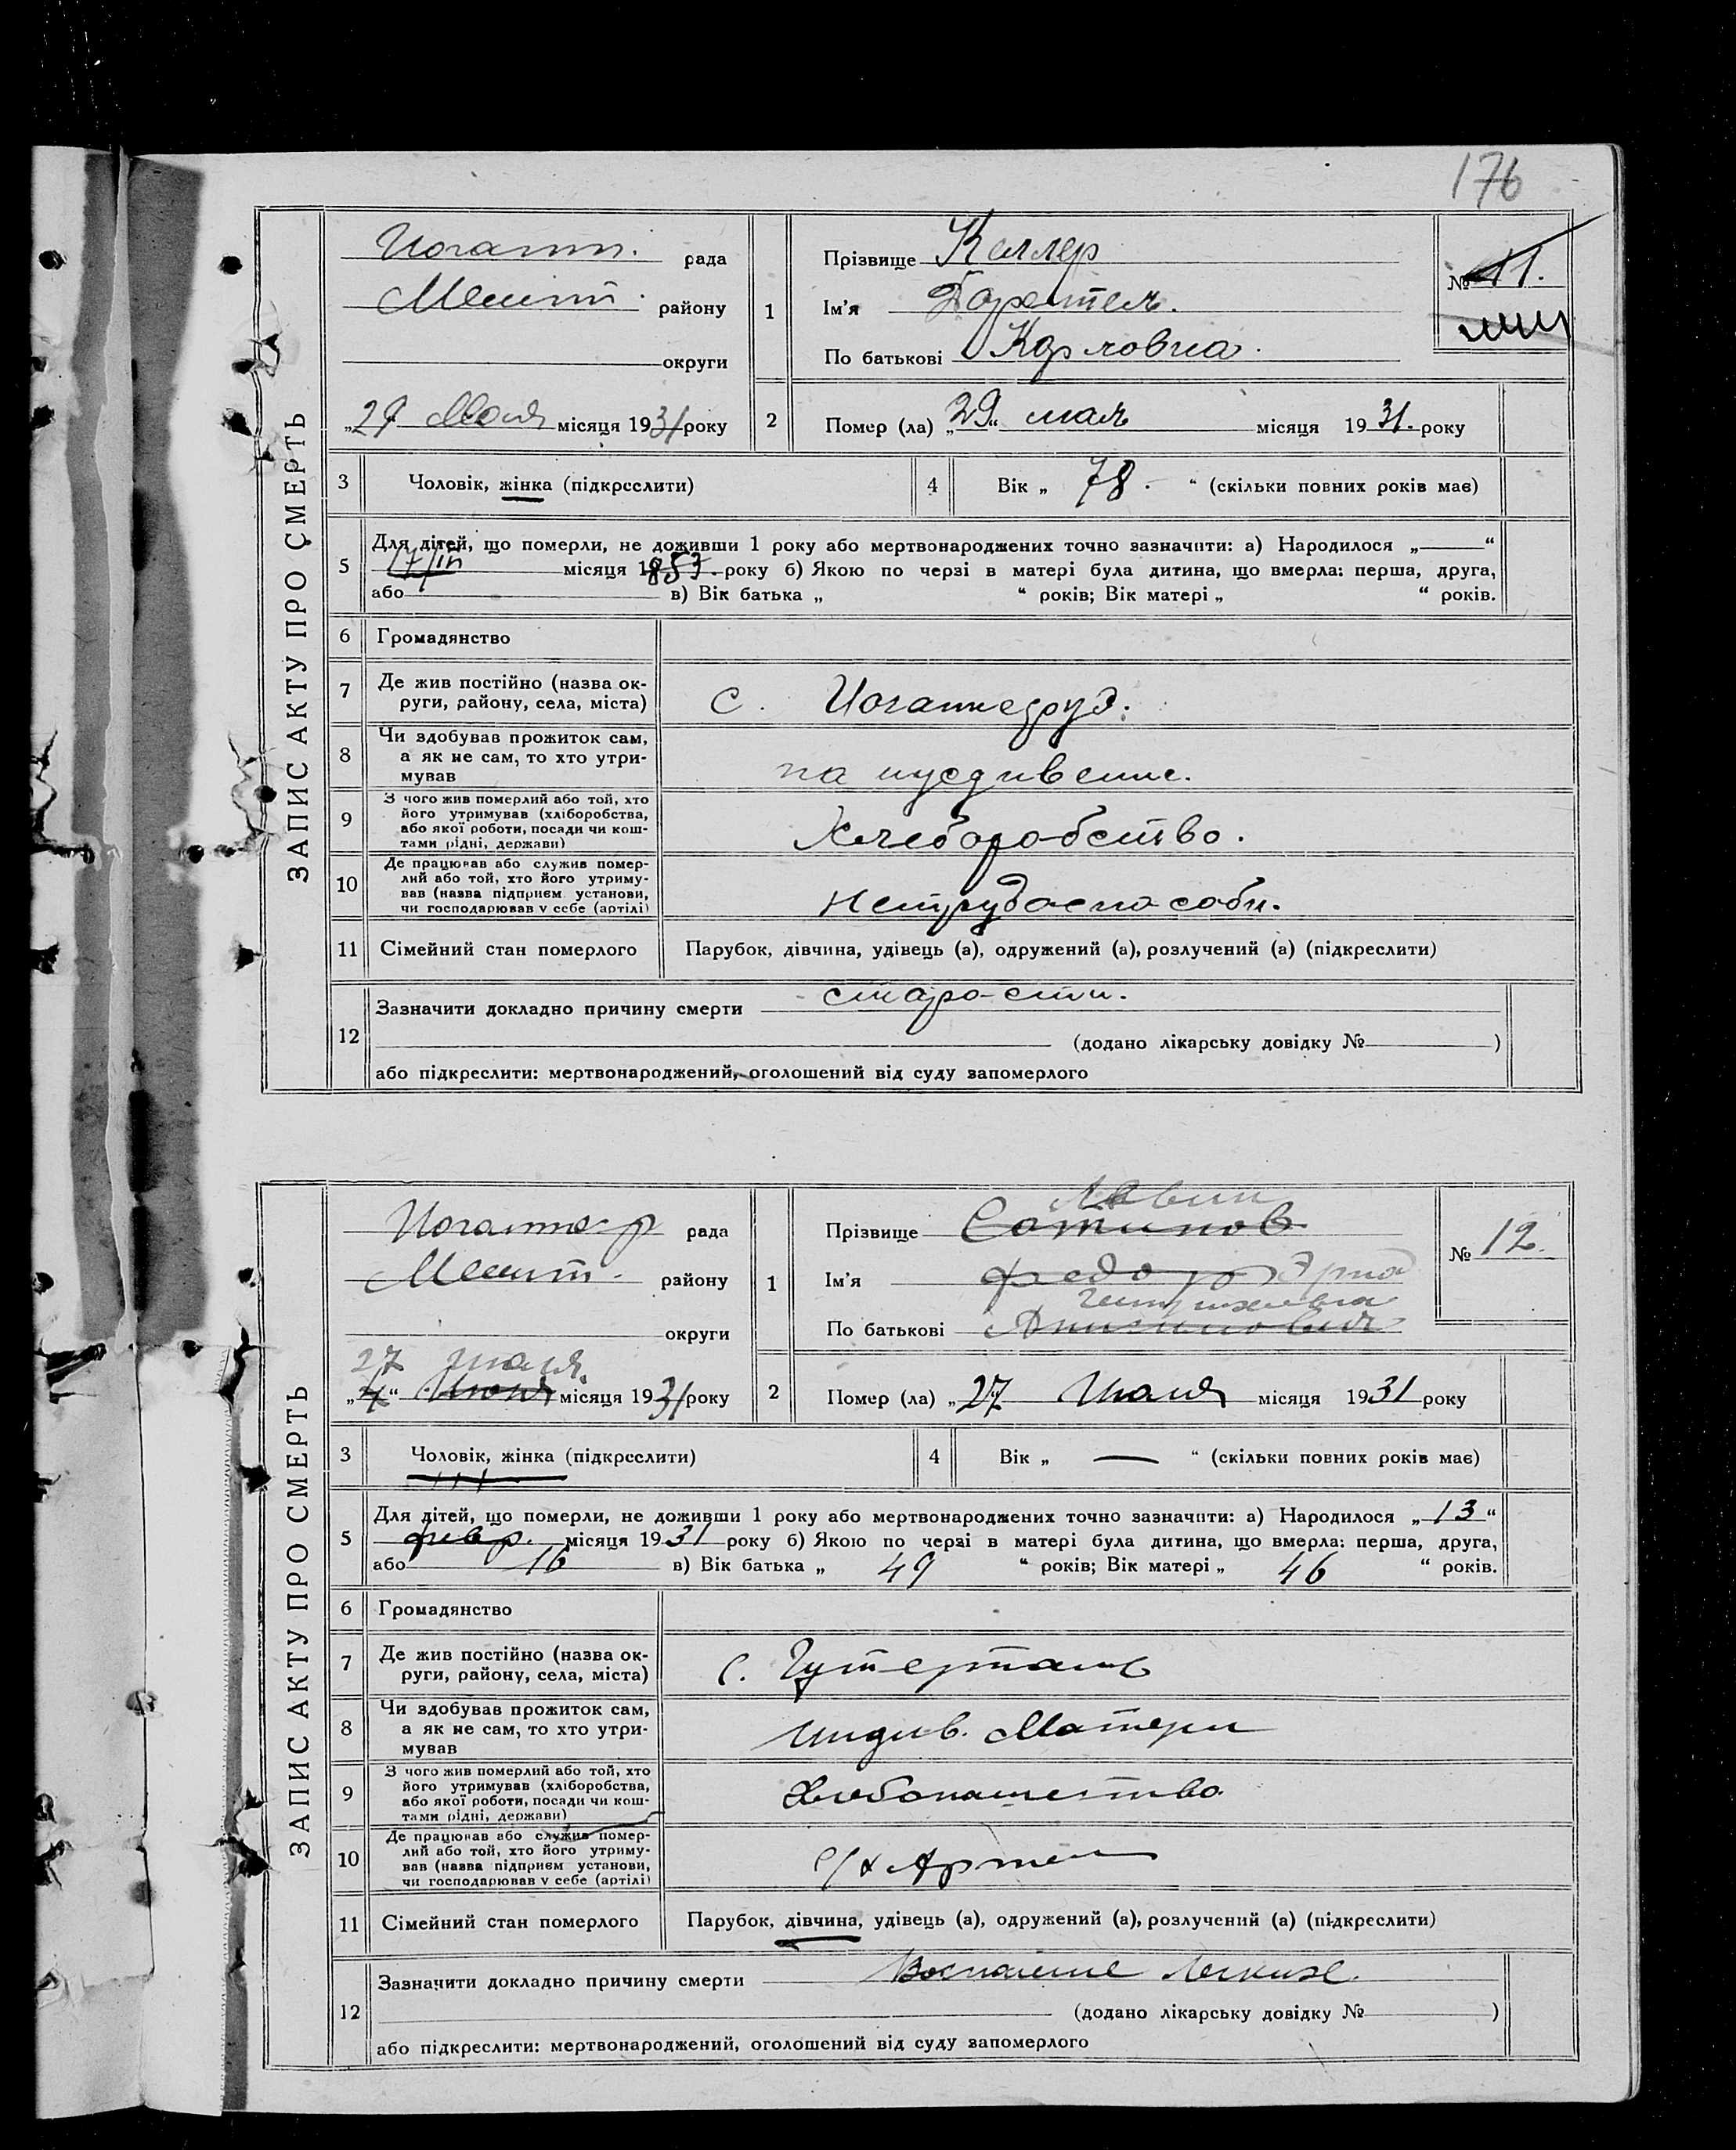 176
ЗАПИС АКТУ ПРО СМЕРТЬ
рада
району
округи
„29“ Мая місяця 1931 року
1
Прізвище Келлер
Ім’я
По батькові Карловна.
№ 11.
2
Помер (ла) „29“ мая місяця 1931. року
3 Чоловік, жінка (підкреслити)
4 Вік „ 78. “ (скільки повних років має)
5 Для дітей, що померли, не доживши 1 року або мертвонароджених точно зазначити: а) Народилося „ “
17/III місяця 1853. року б) Якою по черзі в матері була дитина, що вмерла: перша, друга,
або в) Вік батька „ “ років; Вік матері „ “ років.
6 Громадянство
7 Де жив постійно (назва ок-
руги, району, села, міста)
с.
8 Чи здобував прожиток сам,
а як не сам, то хто утри-
мував
на иждивение.
9 З чого жив померлий або той, хто
його утримував (хліборобства,
або якої роботи, посади чи кош-
тами рідні, держави)
Хлеборобство.
10 Де працював або служив помер-
лий або той, хто його утриму-
вав (назва підприєм. установи,
чи господарював у себе (артілі)
нетрудоспособн.
11 Сімейний стан померлого
Парубок, дівчина, удівець (а), одружений (а), розлучений (а) (підкреслити)
12 Зазначити докладно причину смерти старости.
(додано лікарську довідку № )
або підкреслити: мертвонароджений, оголошений від суду запомерлого
ЗАПИС АКТУ ПРО СМЕРТЬ
рада
району
округи
27 мая
місяця 1931 року
1
Прізвище
Ім’я Федор Эрна
По батькові
№ 12.
2
Помер (ла) „27“ Мая місяця 1931 року
3 Чоловік, жінка (підкреслити)
4 Вік „ — “ (скільки повних років має)
5 Для дітей, що померли, не доживши 1 року або мертвонароджених точно зазначити: а) Народилося „13“
февр. місяця 1931 року б) Якою по черзі в матері була дитина, що вмерла: перша, друга,
або 16 в) Вік батька „ 49 “ років; Вік матері „ 46 “ років.
6 Громадянство
7 Де жив постійно (назва ок-
руги, району, села, міста)
с. Гутерталь
8 Чи здобував прожиток сам,
а як не сам, то хто утри-
мував
иждив. Матери
9 З чого жив померлий або той, хто
його утримував (хліборобства,
або якої роботи, посади чи кош-
тами рідні, держави)
Хлебопашество
10 Де працював або служив помер-
лий або той, хто його утриму-
вав (назва підприєм. установи,
чи господарював у себе (артілі)
с/х Артели
11 Сімейний стан померлого
Парубок, дівчина, удівець (а), одружений (а), розлучений (а) (підкреслити)
12 Зазначити докладно причину смерти Воспаление легких.
(додано лікарську довідку № )
або підкреслити: мертвонароджений, оголошений від суду запомерлого